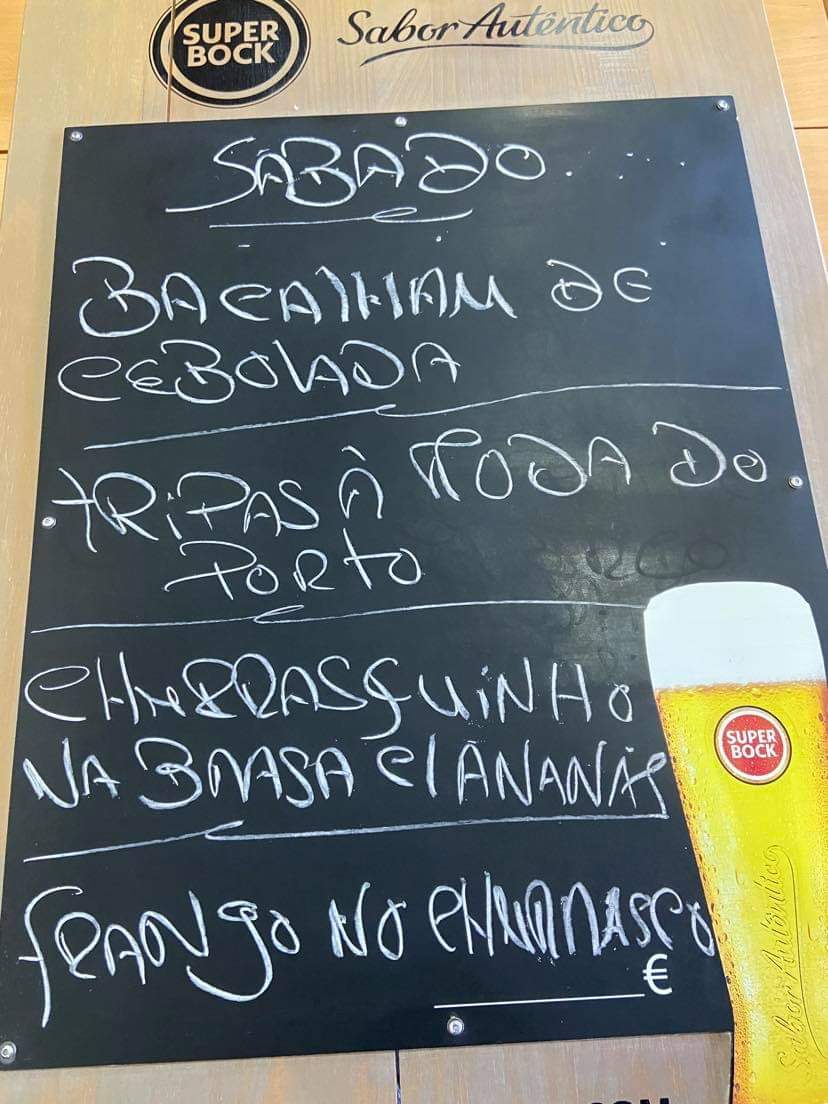 SUPER
BOCK
Sabor Autêntico
SÁBADO.....
BACALHAU DE
CEBOLADA
TRIPAS À MODA DO
PORTO
CHURRASQUINHO
NA BRASA C/ ANANÁS
FRANGO NO CHURRASCO
€
SUPER
BOCK
Sabor Autêntico